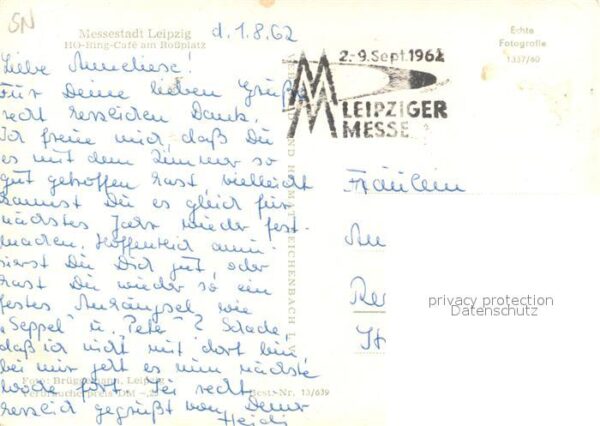 SN
Messestadt Leipzig
HO-Ring-Café am Roßplatz
d. 1.8.62
Echte
Fotografie
1337/60
2.-9. Sept. 1962
MM
LEIPZIGER
MESSE
Liebe Anneliese!
Für Deine lieben Grüße
recht herzlichen Dank.
Ich freue mich, daß Du
es mit dem Zimmer so
gut getroffen hast, vielleicht
kannst Du es gleich für
nächstes Jahr wieder fest
machen. Hoffentlich amü-
sierst Du Dich gut, oder
hast Du wieder so ein
festes Anhängsel wie
"Seppel" u. Peter? Schade
daß ich nicht mit dort bin,
bei mir geht es nun nächste
Woche fort. Sei recht
herzlich gegrüßt von Deiner
Heidi
Fräulein
An
Re
St
REICHENBACH I. V.
Foto: Brüggemann, Leipzig
Verbraucherpreis DM -,25
Best.-Nr. 13/639
privacy protection
Datenschutz